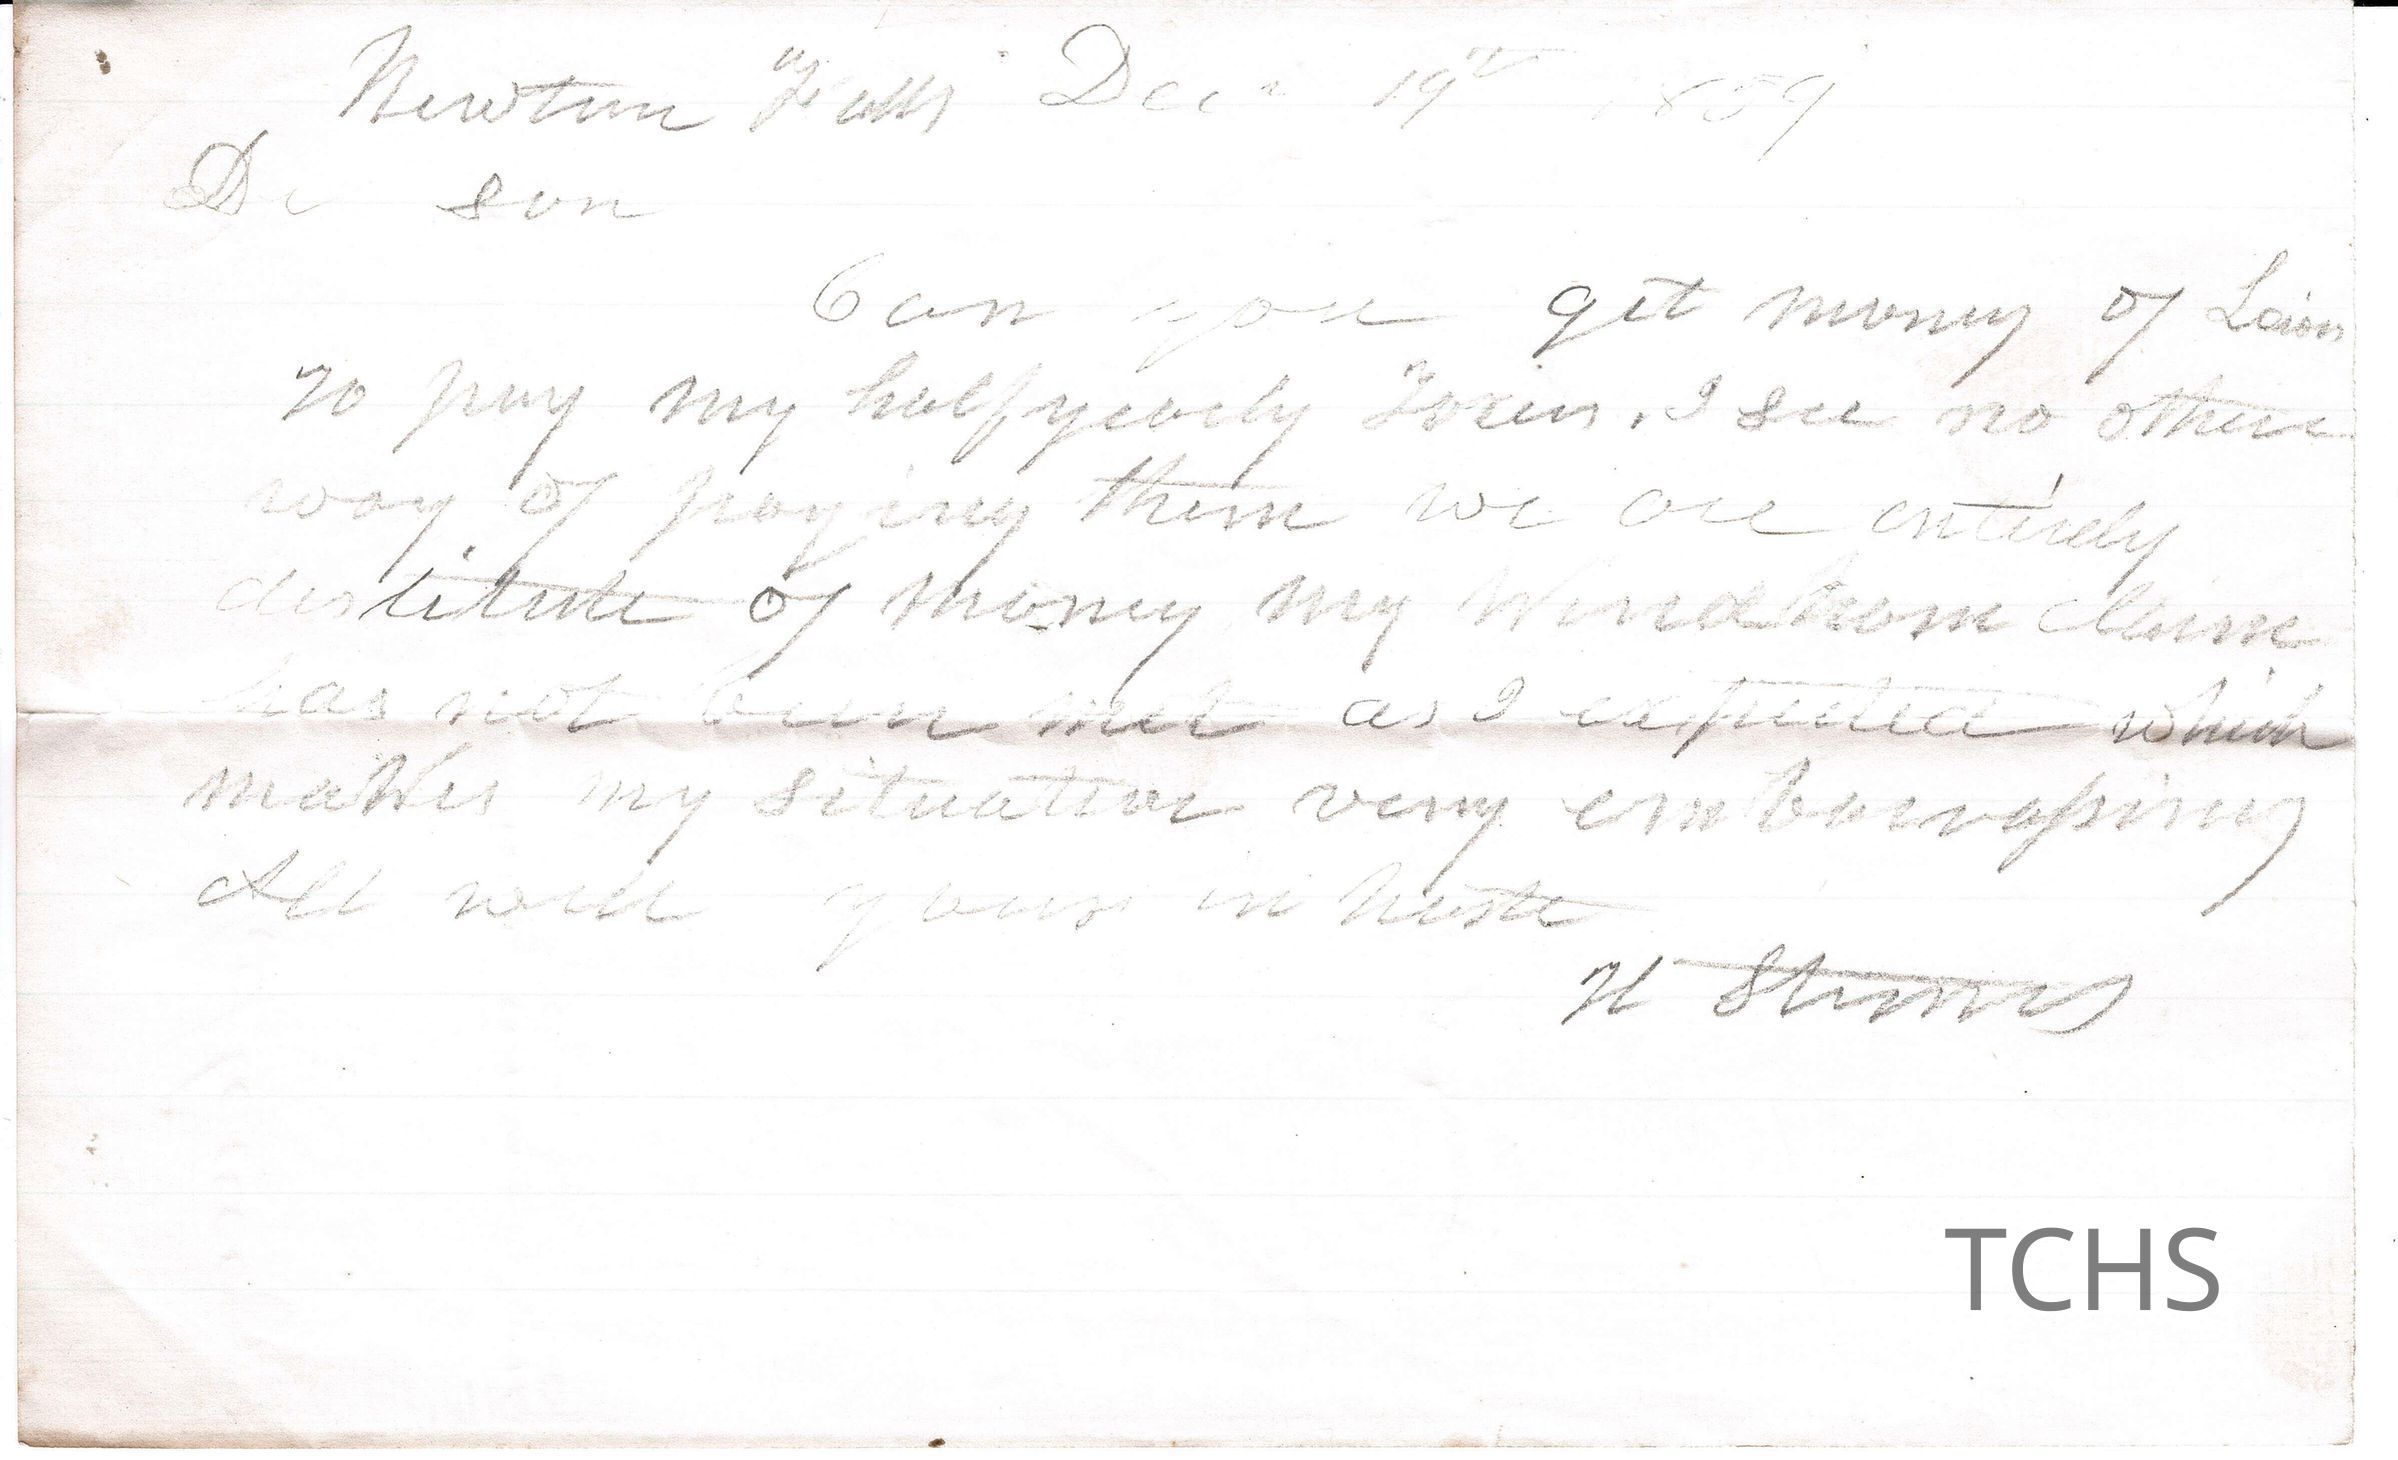 Newton Falls Dec 19th 1859
Dr son
Can you get money of
to pay my halfyearly Taxes. I see no other
way of paying them we are entirely
destitute of money my Windham Claim
has not been met as I expected which
makes my situation very embarrassing
All well yours in haste
H
TCHS